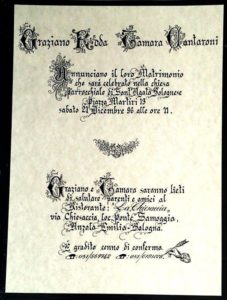 Graziano Tamara Cantaroni
Annunciano il loro Matrimonio
che sarà celebrato nella chiesa
parrocchiale di Sant'Agata Bolognese
Piazza Martiri 13
sabato 21 Dicembre 96 alle ore 11.
Graziano e Tamara saranno lieti
di salutare parenti e amici al
Ristorante: La Chiesaccia
via Chiesaccia, loc. Ponte Samoggia,
Anzola Emilia-Bologna.
È gradito cenno di conferma.